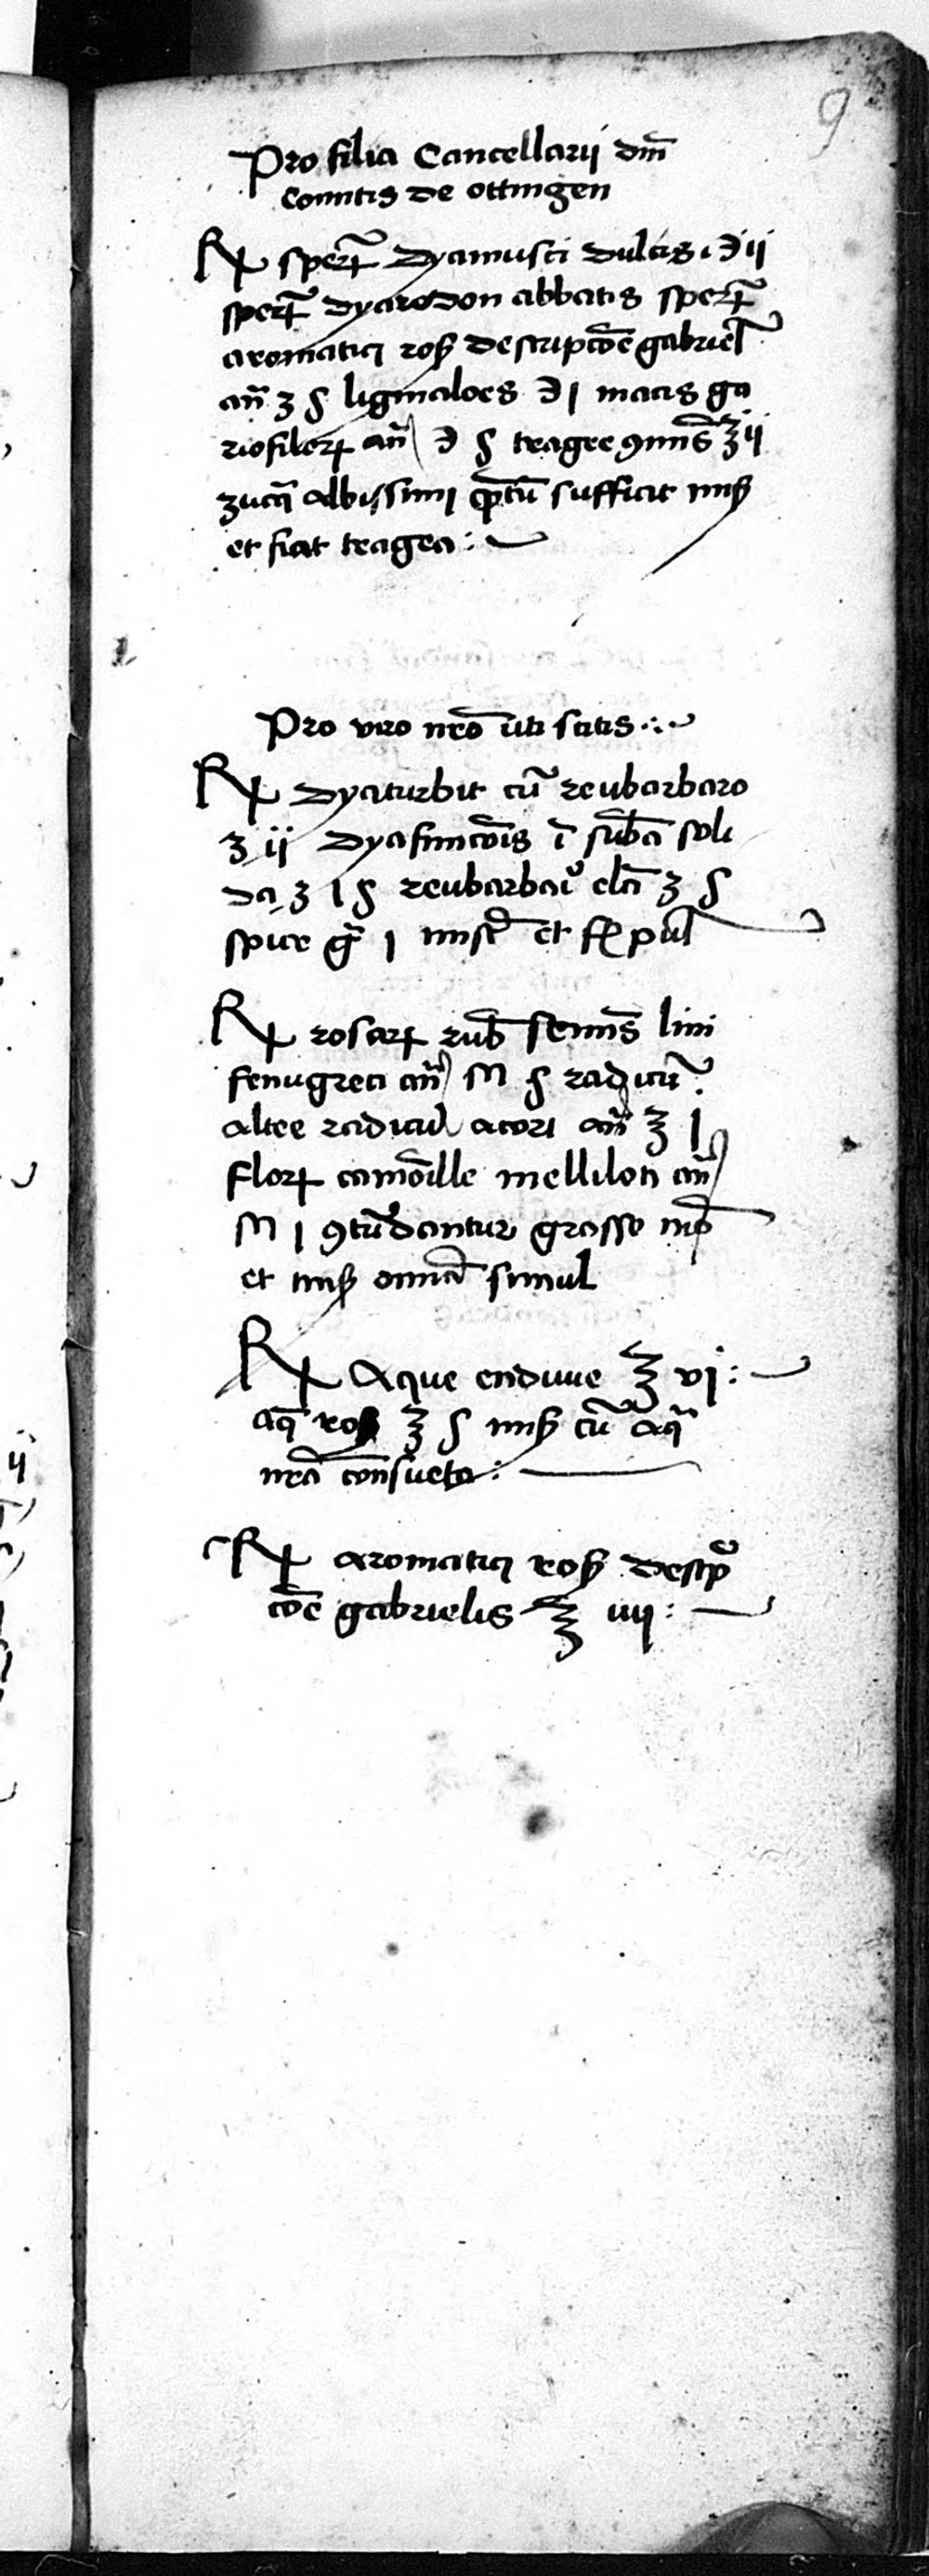 9
Pro filia Cancellarii dm̄
Comitis de ottingen
℞ sperꝝ dyamusci dulcis ℈ ij
sperꝝ dyarodon abbatis sperꝝ
aromatici roſ descripcōe gabriel
an̄ ʒ ß ligni aloes ℈ j macis ga
riofilorꝝ an̄ ℈ ß tragee ꝯmūs ℥ ij
zucꝗ albissimi qͣntū sufficit misſ
et fiat tragea :
Pro viro nr̄o uti scitis
℞ dyaturbit cū reubarbaro
ʒ ij dyafinicōis ī sub̄a soli
da ʒ j ß reubarbari elc̄i ʒ ß
spice gͣ j misc̄ et f pul
℞ rosarꝝ rub̄ semīs lini
fenugreci an̄ M ß radicū
altee radicū acori an̄ ℥ j
florꝝ camōille melliloti an̄
M j ꝯtūdantur grosso mō
et misſ omīa simul
℞ Aque endiuie ℥ vj :
aq̄ roſ ℥ ß misſ cū aqͣ
nr̄a consueta :
℞ aromatici roſ descͥp
cōe gabrielis ℥ iiij :
ij